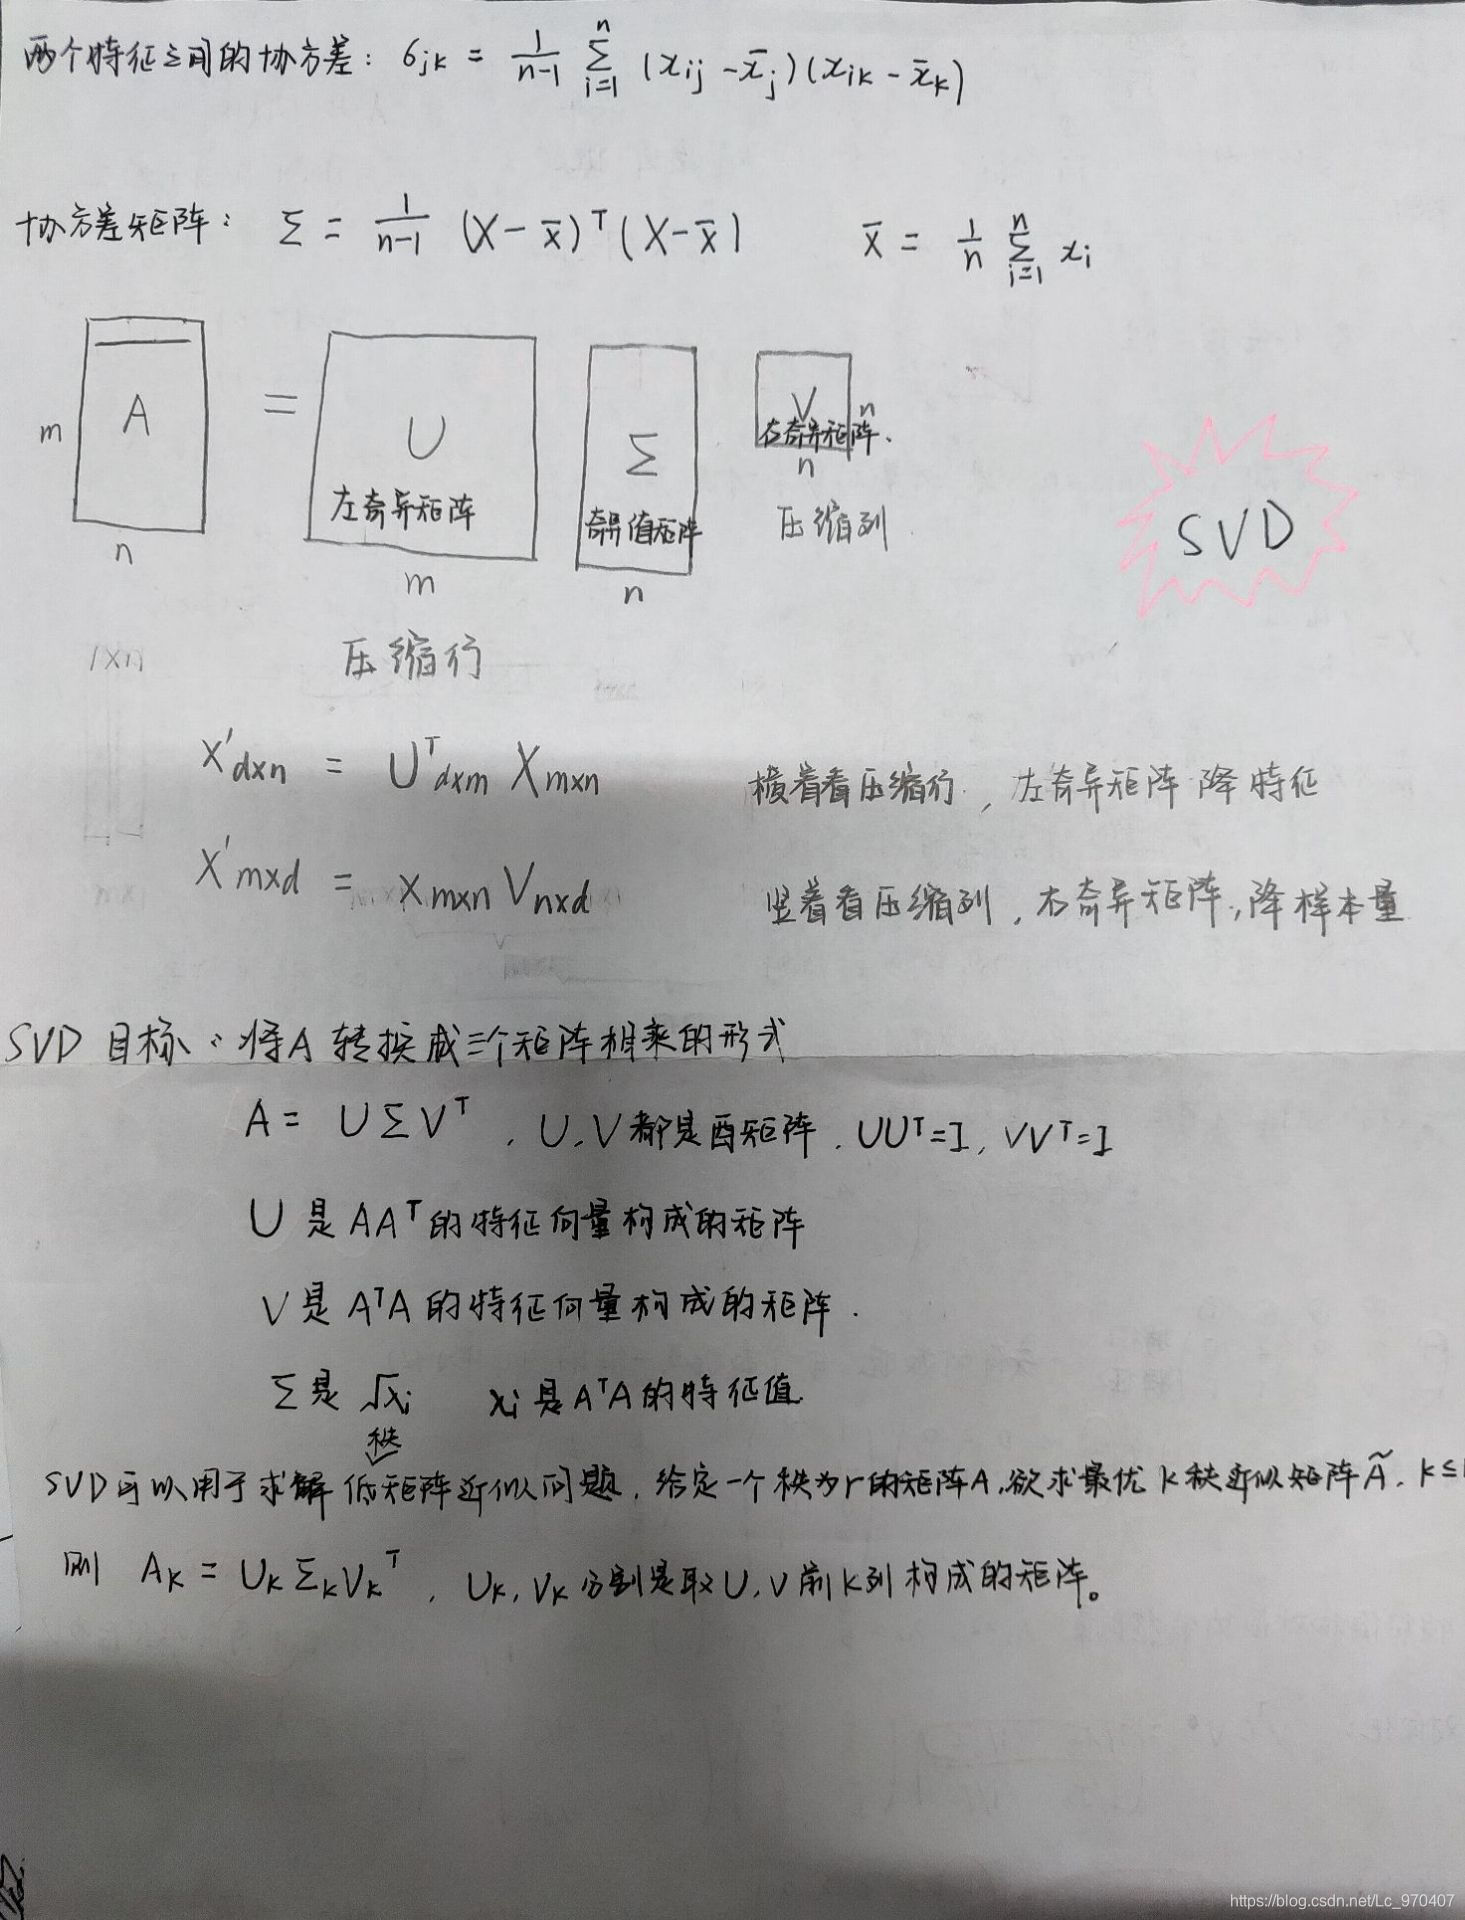 两个特征之间的协方差: σjk = 1/(n-1) ∑_{i=1}^{n} (xij - x̄j)(xik - x̄k)
协方差矩阵: Σ = 1/(n-1) (X - x̄)^T (X - x̄)    x̄ = 1/n ∑_{i=1}^{n} xi
m A n = U 左奇异矩阵 m Σ 奇异值矩阵 n V 右奇异矩阵. n n
压缩列
SVD
压缩行
X'd×n = U^T d×m Xm×n    横着看压缩行, 左奇异矩阵 降特征
X'm×d = Xm×n Vn×d    竖着看压缩列, 右奇异矩阵, 降样本量
SVD 目标: 将A 转换成三个矩阵相乘的形式
A = UΣV^T, U, V都是酉矩阵, UU^T=I, VV^T=I
U 是 AA^T 的特征向量构成的矩阵
V 是 A^TA 的特征向量构成的矩阵.
Σ是 √λi    λi 是 A^TA 的特征值
SVD可以用于求解 低秩矩阵近似问题, 给定一个秩为r的矩阵A, 欲求最优 k秩近似矩阵Ã, k≤
则 Ak = UkΣkVk^T, Uk, Vk 分别是取U, V 前k列 构成的矩阵。
https://blog.csdn.net/Lc_970407